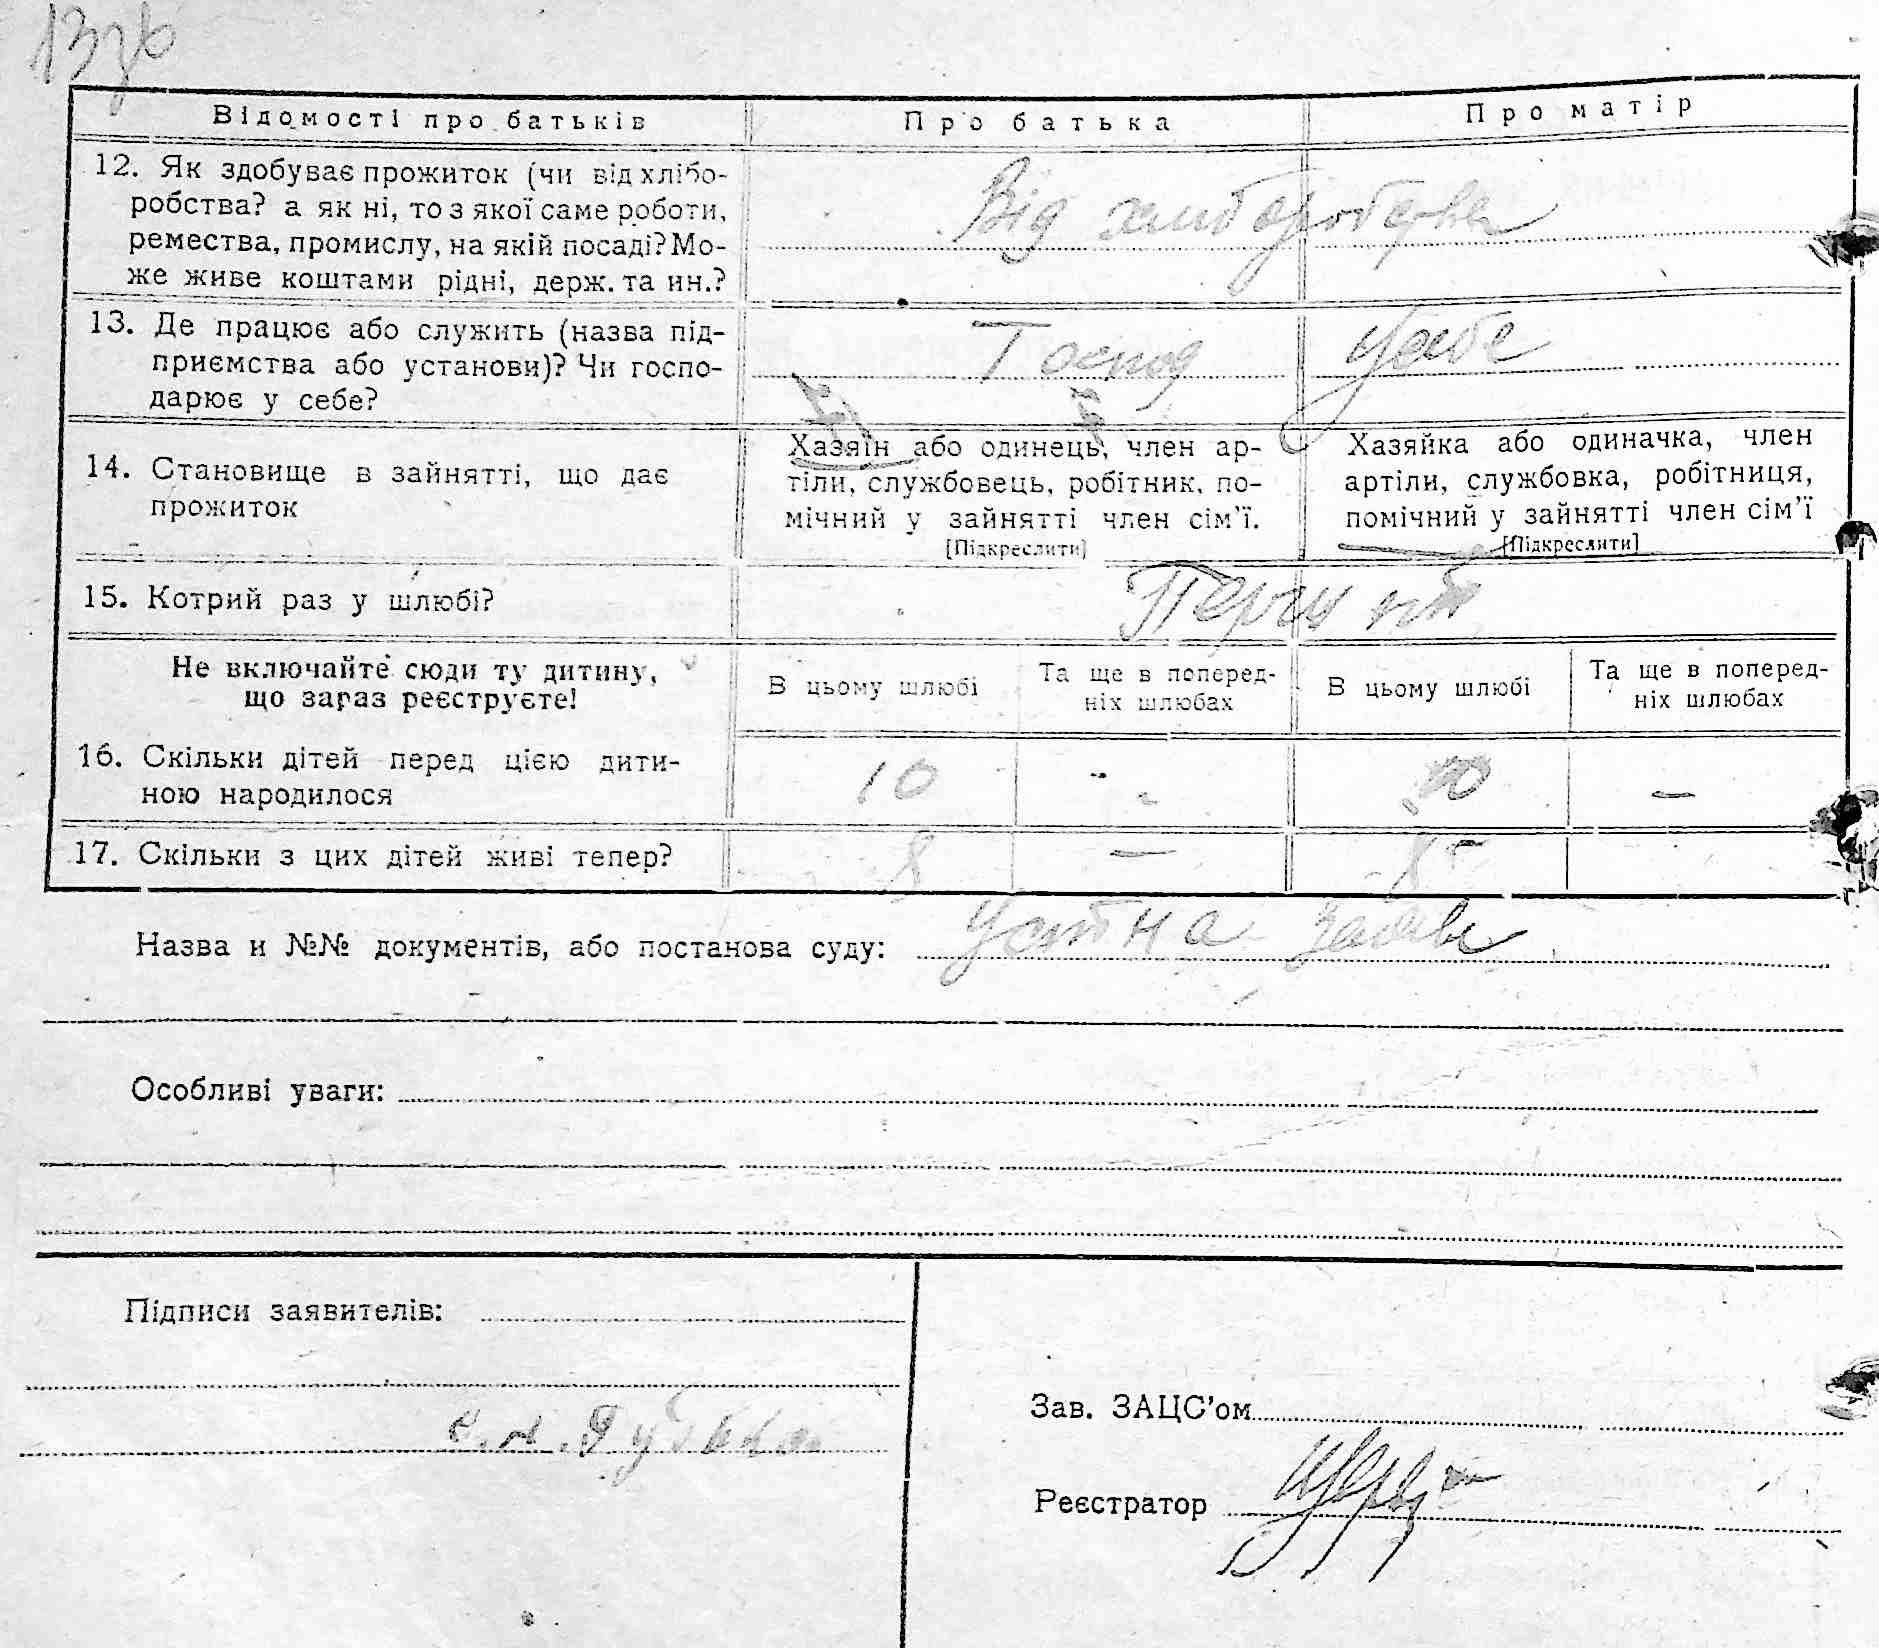 13зб
Відомості про батьків Про батька Про матір
12. Як здобуває прожиток (чи від хлібо-
робства? а як ні, то з якої саме роботи,
ремества, промислу, на якій посаді? Мо-
же живе коштами рідні, держ. та ин.?
Від хлиборобства
13. Де працює або служить (назва під-
приємства або установи)? Чи госпо-
дарює у себе?
Господ у себе
14. Становище в зайнятті, що дає
прожиток
Хазяїн або одинець, член ар-
тіли, службовець, робітник, по-
мічний у зайнятті член сім'ї.
[Підкреслити]
Хазяйка або одиначка, член
артіли, службовка, робітниця,
помічний у зайнятті член сім'ї
[Підкреслити]
15. Котрий раз у шлюбі?
Не включайте сюди ту дитину,
що зараз реєструєте!
В цьому шлюбі
Та ще в поперед-
ніх шлюбах
В цьому шлюбі
Та ще в поперед-
ніх шлюбах
16. Скільки дітей перед цією дити-
ною народилося
10 - 10 —
17. Скільки з цих дітей живі тепер?
8 — 8 -
Назва и №№ документів, або постанова суду: Устна заява
Особливі уваги:
Підписи заявителів:
Зав. ЗАЦС'ом
Реєстратор